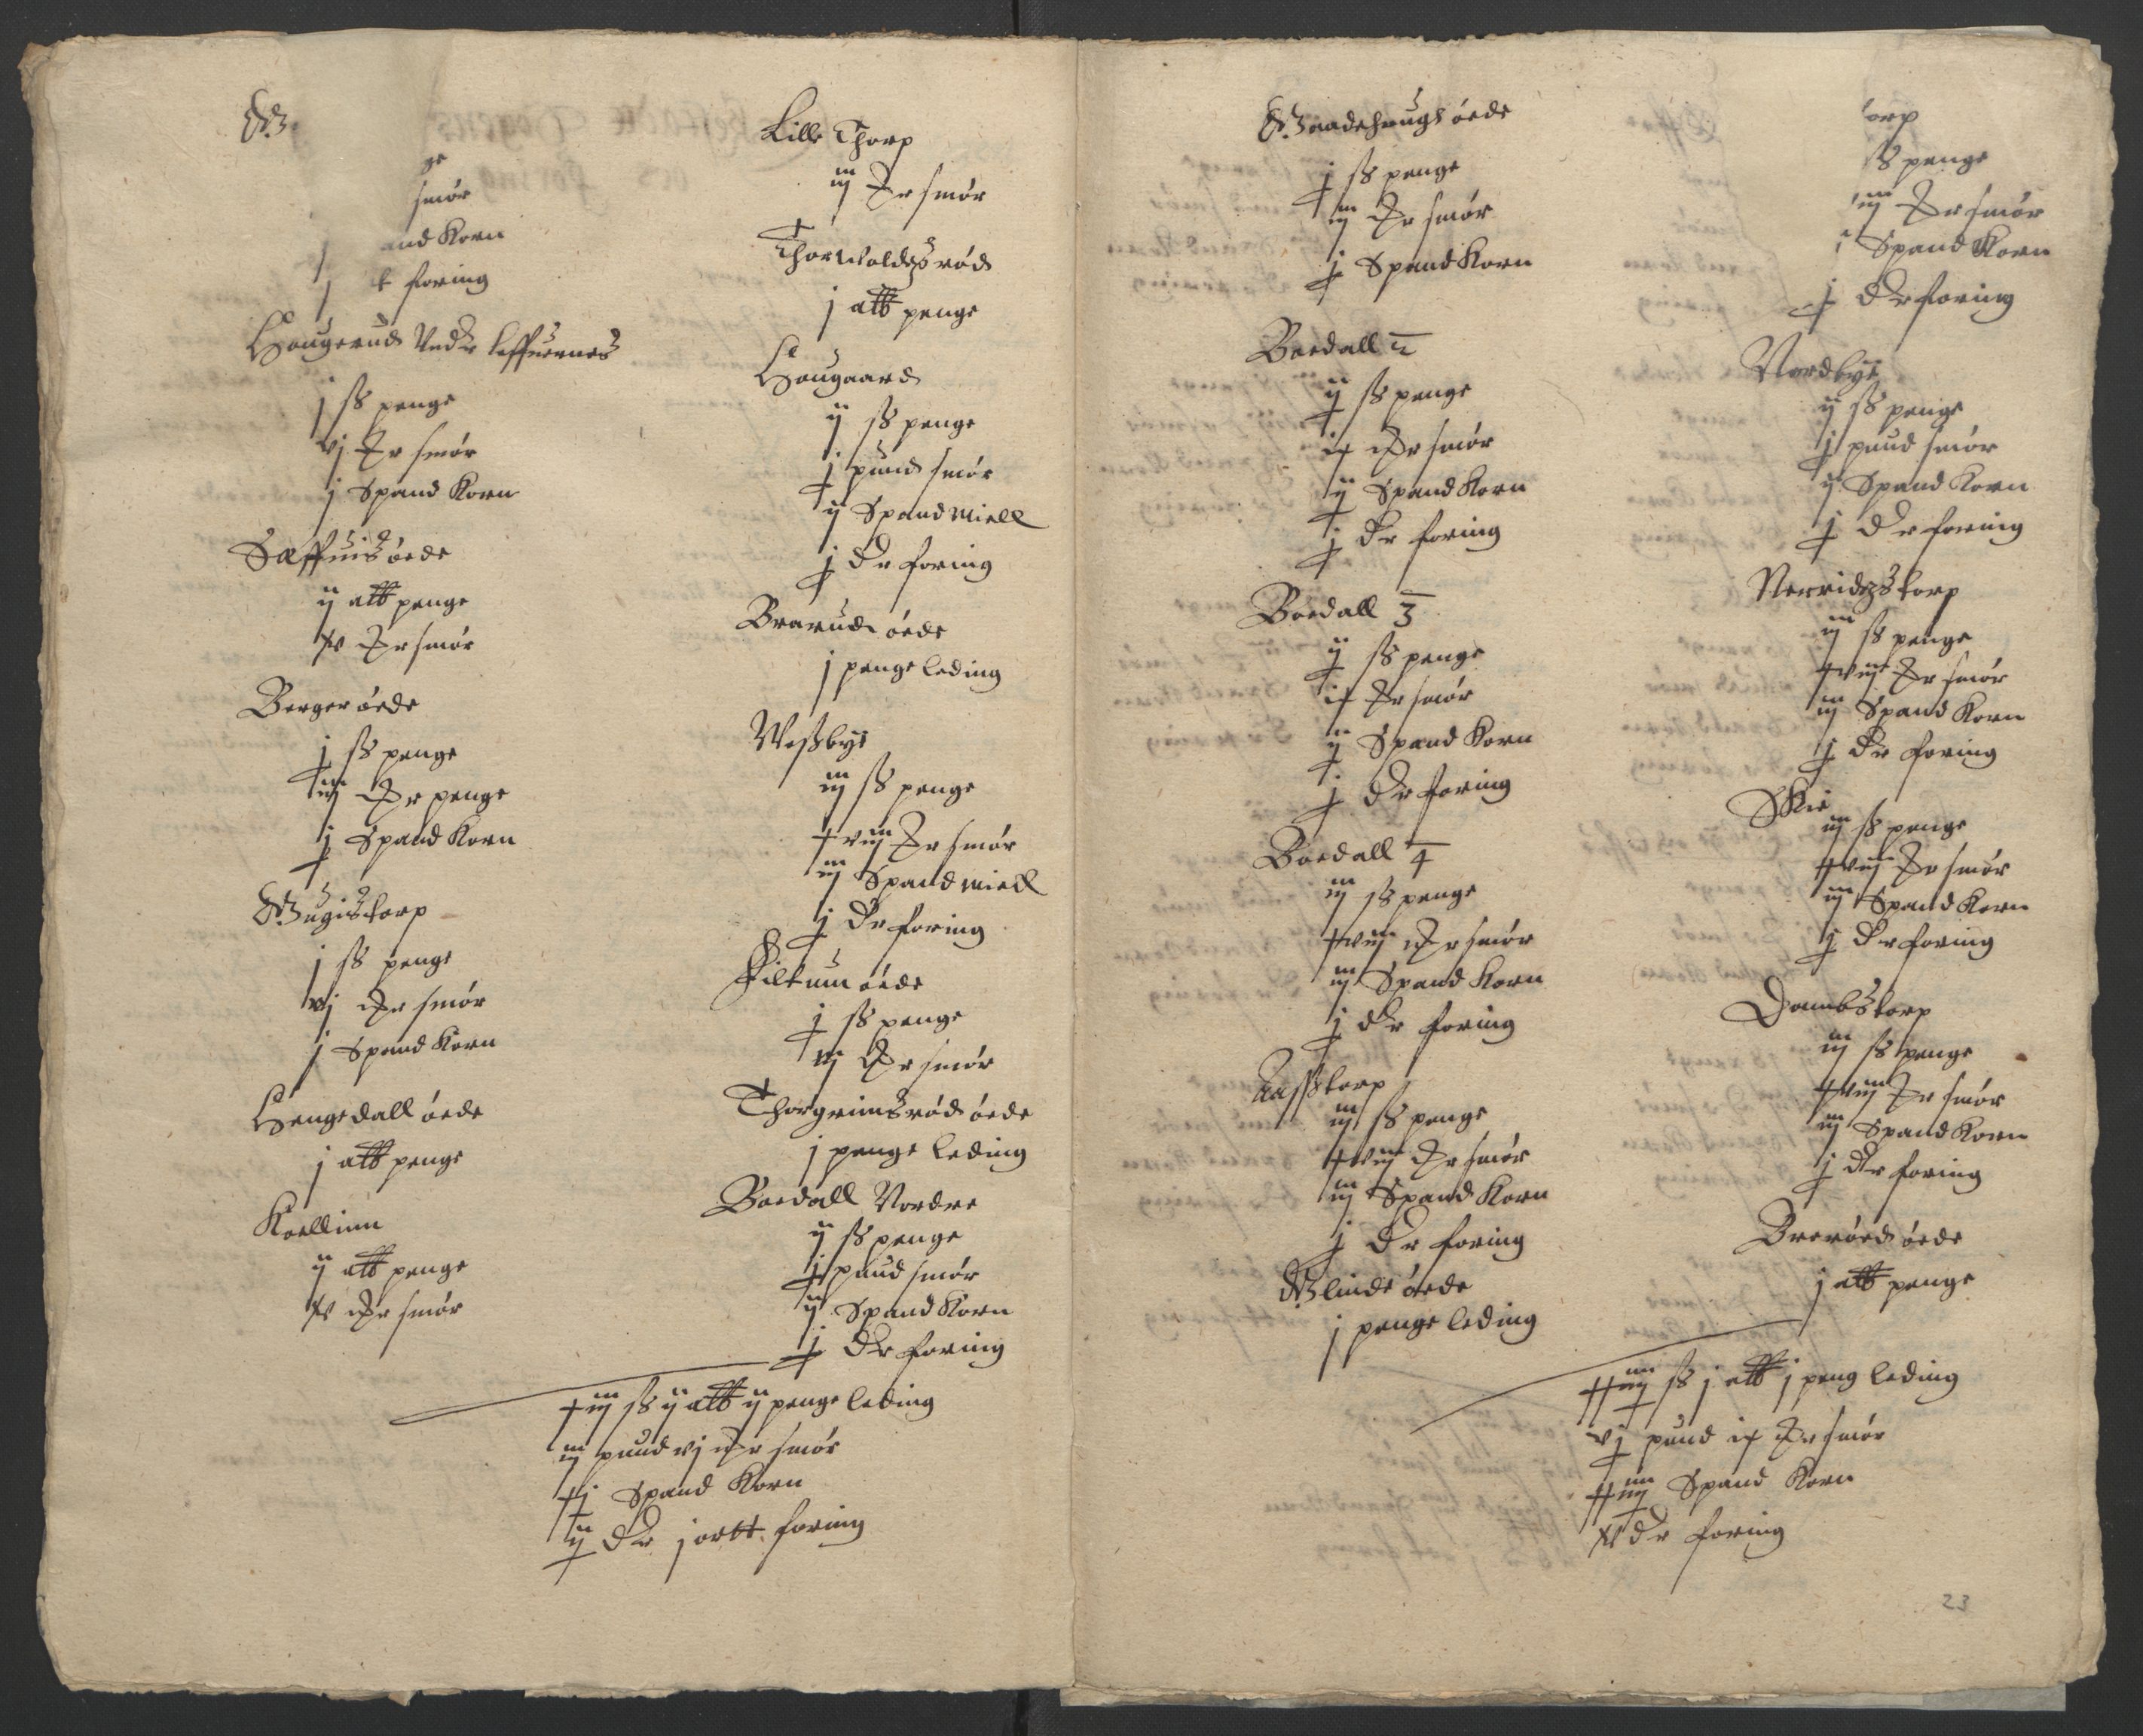 ge
smør
and Korn
foring
Hougerud Vnder Leffuernes
j ß penge
vj Mr smør
j Spand Korn
Sæffuis øede
ij att penge
xv Mr smør
Berger øede
j ß penge
iij Mr penge
j Spand Korn
Bugistorp
j ß penge
vj Mr smør
j Spand Korn
Hengedall øede
j att penge
Kollinn
ij att penge
xv Mr smør
Lille Thorp
iij Mr smør
Thorwoldzrød
j att penge
Hougaard
ij ß penge
j pund smør
ij Spand Miell
j Dr foring
Brarud øede
j penge leding
Weßbye
iij ß penge
xviij Mr smør
iij Spand Miell
j Dr foring
Filtum øede
j ß penge
iij Mr smør
Thorgrimsrød øede
j penge leding
Boedall Nordre
ij ß penge
j pund smør
ij Spand Korn
j Dr foring
xiij ß ij att ij penge leding
iij pund vj Mr smør
xj Spand Korn
ij Dr j ortt foring
øede
j ß penge
iij Mr smør
j Spand Korn
Boedall 2
ij ß penge
ix Mr smør
ij Spand Korn
j Dr foring
Boedall 3
ij ß penge
ix Mr smør
ij Spand Korn
j Dr foring
Boedall 4
iij ß penge
xviij Mr smør
iij Spand Korn
j Dr foring
Aasstorp
iij ß penge
xviij Mr smør
iij Spand Korn
j Dr foring
Blinde øede
j penge leding
orp
ß penge
iij Mr smør
Spand Korn
j Dr foring
Nordbye
ij ß penge
j pund smør
ij Spand Korn
j Dr foring
Nerridzstorp
iij ß penge
xviij Mr smør
iij Spand Korn
j Dr foring
Skie
iij ß penge
xviij Mr smør
iij Spand Korn
j Dr foring
Dombstorp
iij ß penge
xviij Mr smør
iij Spand Korn
j Dr foring
Brerøed øede
j att penge
xxiiij ß j att j peng leding
vj pund ix Mr smør
xxiiij Spand Korn
xv Dr foring
23